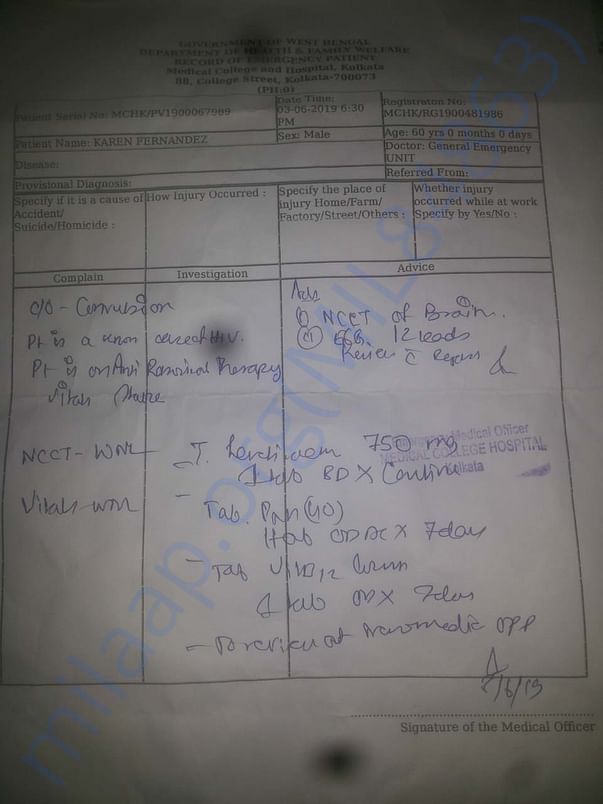 GOVERNMENT OF WEST BENGAL
DEPARTMENT OF HEALTH & FAMILY WELFARE
RECORD OF EMERGENCY PATIENT
Medical College and Hospital, Kolkata
88, College Street, Kolkata-700073
(PH:0)
Patient Serial No: MCHK/PV1900067989
Date Time: 03-06-2019 6:30 PM
Registraton No: MCHK/RG1900481986
Patient Name: KAREN FERNANDEZ
Sex: Male
Age: 60 yrs 0 months 0 days
Disease:
Doctor: General Emergency UNIT
Provisional Diagnosis:
Referred From:
Specify if it is a cause of Accident/ Suicide/Homicide :
How Injury Occurred :
Specify the place of injury Home/Farm/ Factory/Street/Others :
Whether injury occurred while at work Specify by Yes/No :
Complain
Investigation
Advice
C/O - Convulsion
Pt is a HIV.
Pt is on Anti Therapy
Vitals
Adv
NCCT of Brain.
12 leads
Review c
NCCT - WNL
T. 750 mg
1 tab BD X
Medical Officer
MEDICAL COLLEGE HOSPITAL
Kolkata
Vitals WNL
Tab. Pan (40)
1 tab OD AC X 7 day
Tab
1 tab OD X 7 day
at OPD
/6/19
Signature of the Medical Officer
milaap.org(MIL8 863)